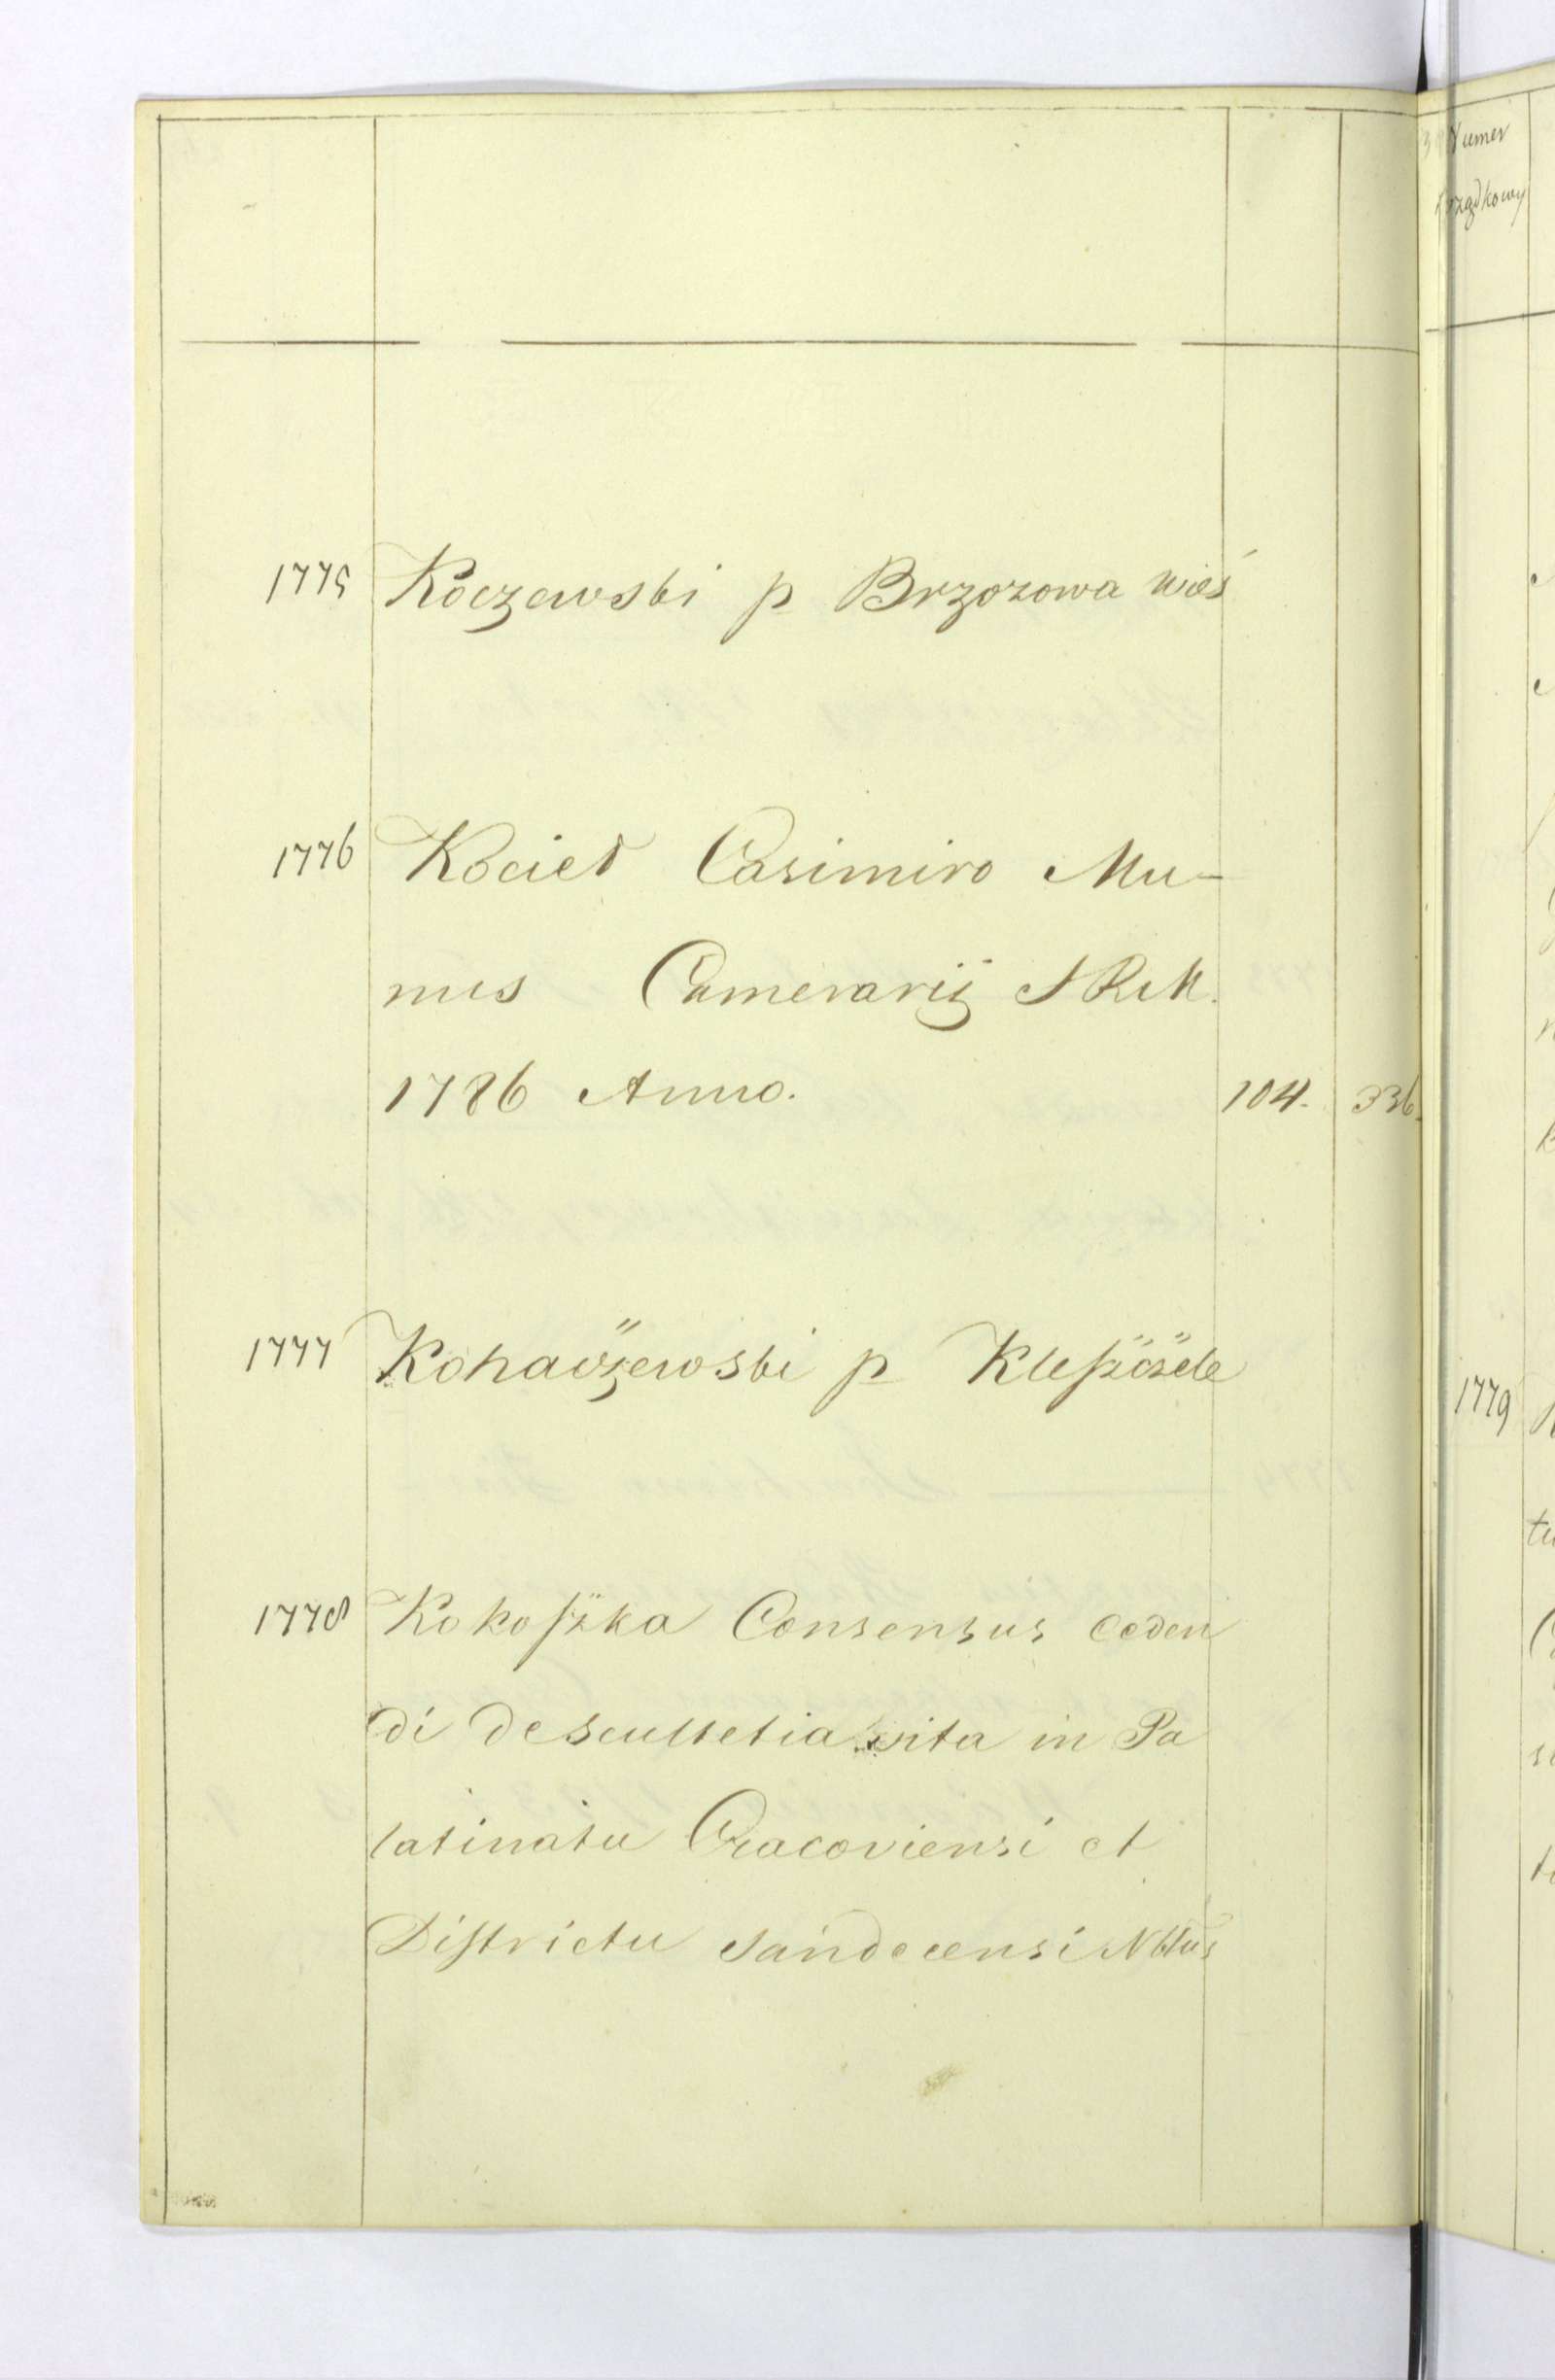 1775 Koczewski p Brzozowa wieś
1776 Kocieł Casimiro Mu-
nus Camerarij SRM.
1786 Anno. 104. 336.
1777 Kohaożewski p
1778 Kokoszka Consensus ceden
di de Scultetia vita in Pa
latinatu Cracoviensi et
Districtu Sandecensi Nbłus
Numer
1779